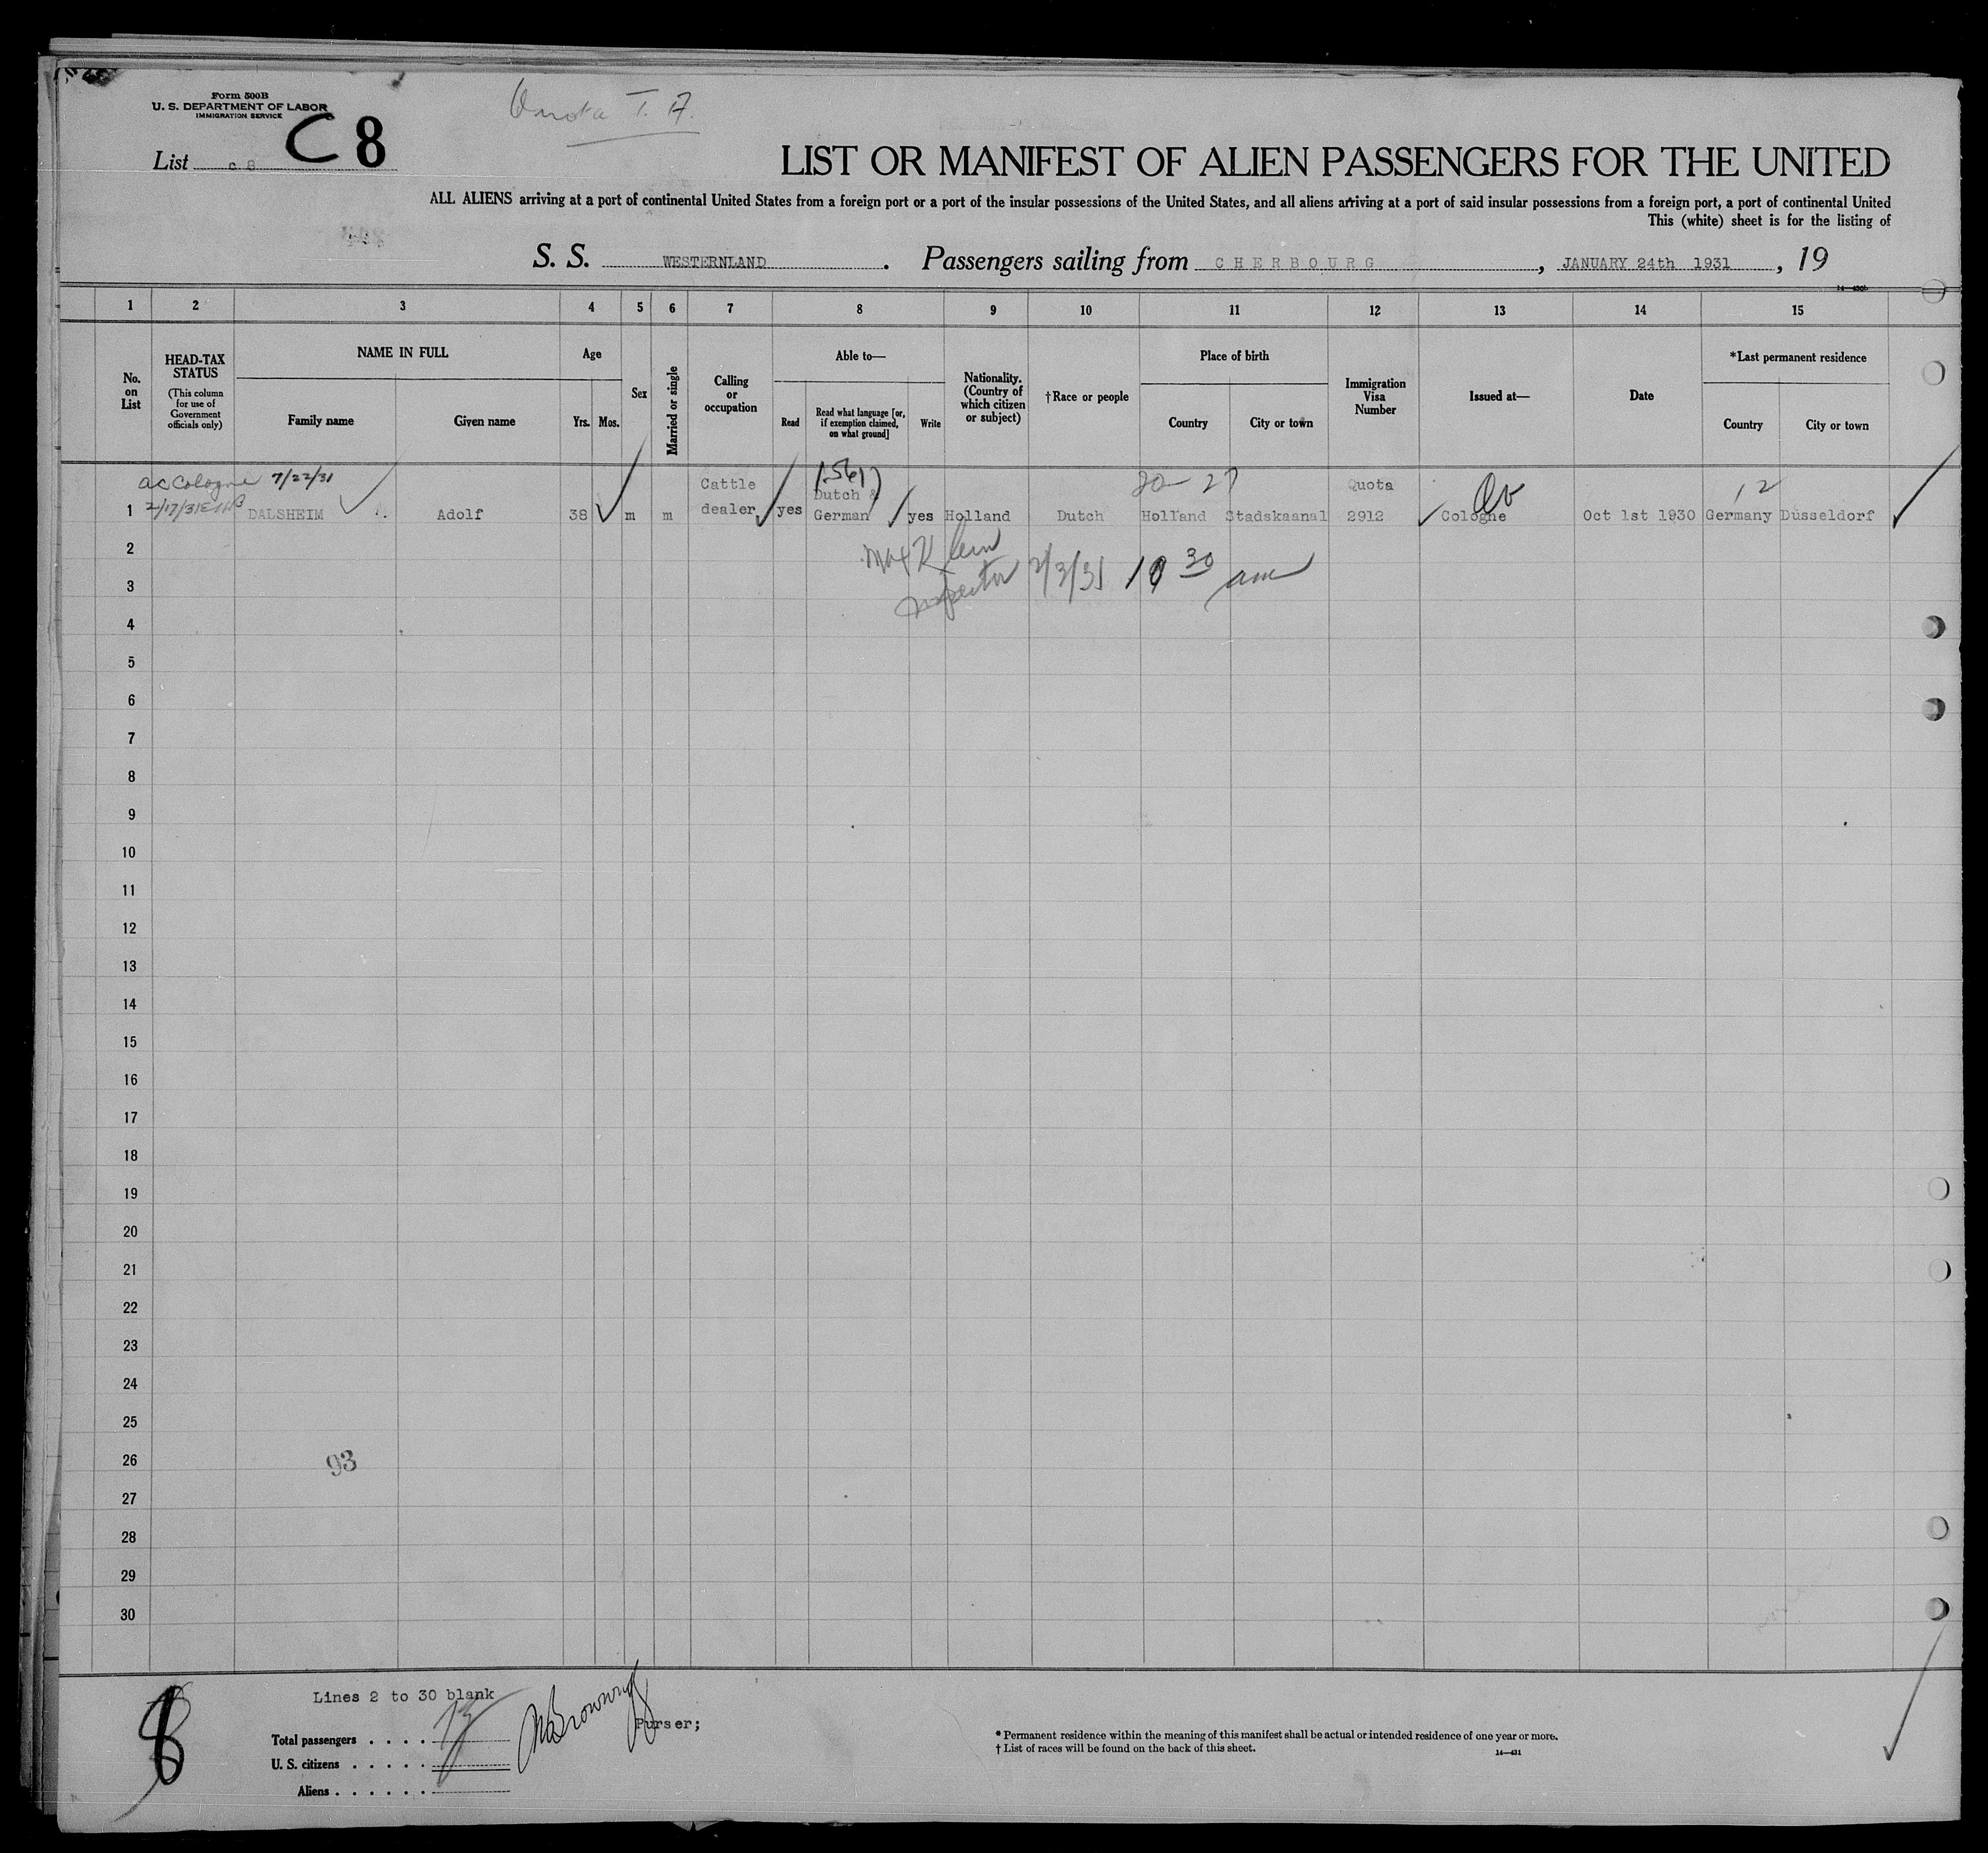 Form 500B
U. S. DEPARTMENT OF LABOR
IMMIGRATION SERVICE
List c 8 C 8
LIST OR MANIFEST OF ALIEN PASSENGERS FOR THE UNITED
ALL ALIENS arriving at a port of continental United States from a foreign port or a port of the insular possessions of the United States, and all aliens arriving at a port of said insular possessions from a foreign port, a port of continental United
This (white) sheet is for the listing of
S. S. WESTERNLAND. Passengers sailing from CHERBOURG, JANUARY 24th 1931, 19
1 2 3 4 5 6 7 8 9 10 11 12 13 14 15
No. on List
HEAD-TAX STATUS
(This column for use of Government officials only)
NAME IN FULL
Family name
Given name
Age
Yrs. Mos.
Sex
Married or single
Calling or occupation
Able to—
Read
Read what language [or, if exemption claimed, on what ground]
Write
Nationality. (Country of which citizen or subject)
†Race or people
Place of birth
Country
City or town
Immigration Visa Number
Issued at—
Date
*Last permanent residence
Country
City or town
ac Cologne 7/22/31
2/17/31
1 DALSHEIM Adolf 38 m m Cattle dealer yes Dutch & German yes Holland Dutch Holland Stadskaanal Quota 2912 Cologne Oct 1st 1930 Germany Düsseldorf
20 27
12
Max Klein
Inspector 2/3/31 10 30 am
2
3
4
5
6
7
8
9
10
11
12
13
14
15
16
17
18
19
20
21
22
23
24
25
26
93
27
28
29
30
Lines 2 to 30 blank
Purser;
Total passengers . . . .
U. S. citizens . . . . .
Aliens . . . . . .
8
* Permanent residence within the meaning of this manifest shall be actual or intended residence of one year or more.
† List of races will be found on the back of this sheet.
14—431